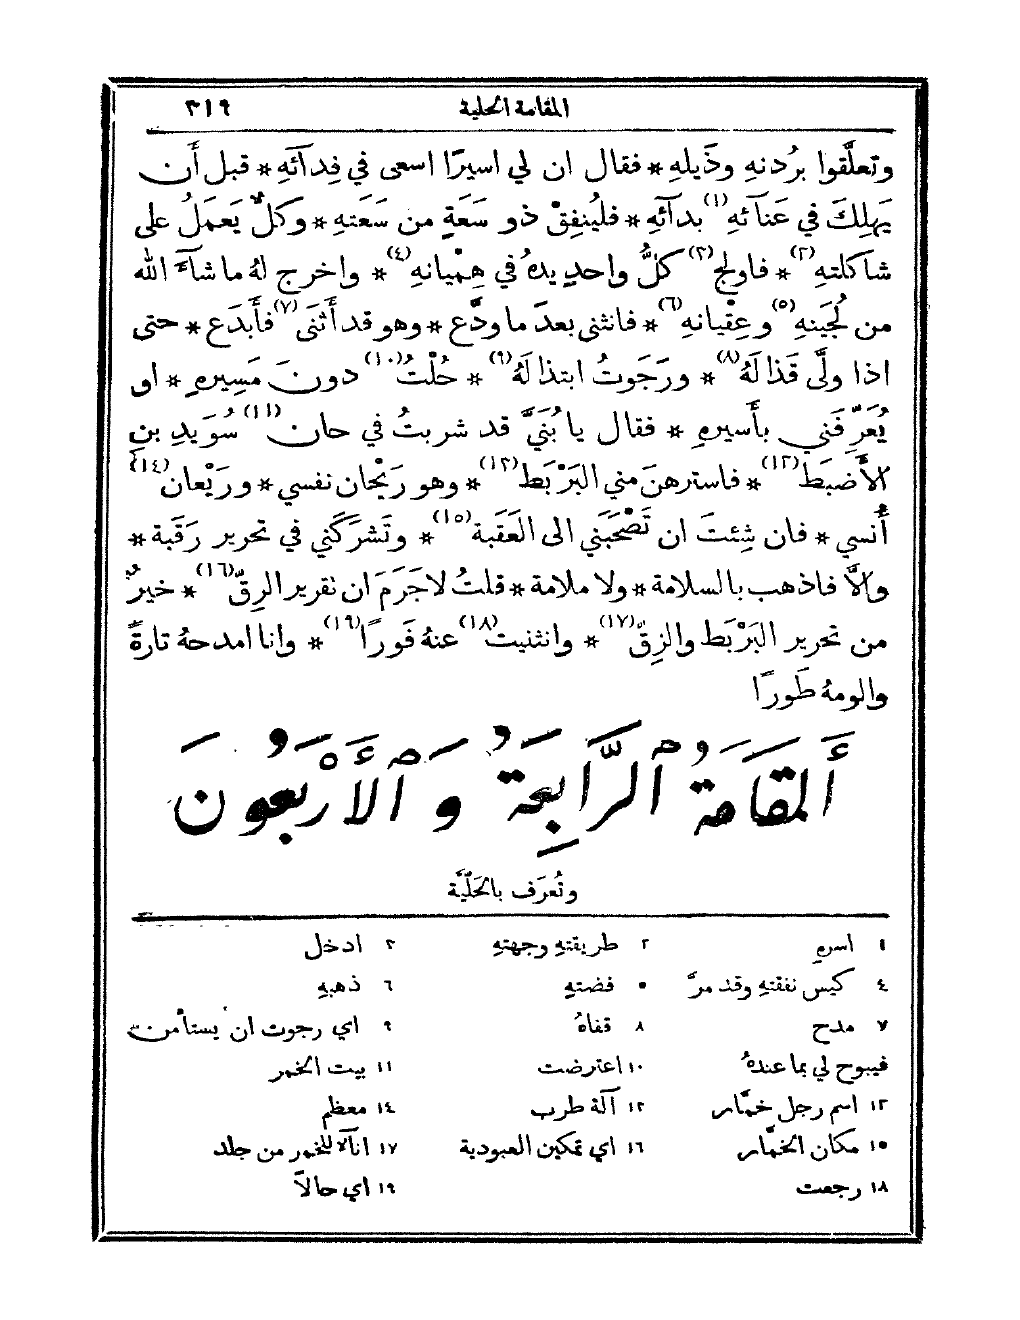 المقامة الحلبية ٣١٩
وتعلَّقوا بِرُدنهِ وذَيلهِ * فقال ان لي اسيرًا اسعى في فِدآئَهِ * قبل أَن
يَهلِكَ في عَنآئهِ(١) بدآئَهِ * فليُنفِقْ ذو سَعَةٍ من سَعَتهِ * وكلٌّ يَعمَلُ على
شاكلتهِ(٢) * فاولج(٣) كلُّ واحدٍ يدهُ في هِمْيانهِ(٤) * واخرج لهُ ما شآءَ الله
من لُجَينهِ(٥) وعِقْيانهِ(٦) * فانثنى بعدَ ما ودَّع * وهو قد أَثنَى(٧) فأَبدَع * حتى
اذا ولَّى قَذالَهُ(٨) * ورَجَوتُ ابتذالَهُ(٩) * حُلْتُ(١٠) دونَ مَسِيرِهِ * او
يُعَرِّفَني بأَسيرهِ * فقال يا بُنَيَّ قد شربتُ في حان(١١) سُوَيدِ بنِ
الأَضبَط(١٢) * فاسترهنَ مني البَرْبَط(١٣) * وهو رَيْحان نفسي * ورَيْعان(١٤)
أُنسي * فان شِئتَ ان تَصْحَبَني الى العَقَبة(١٥) * وتَشرَكَني في تحرير رَقَبة *
والَّا فاذهب بالسلامة * ولا ملامة * قلتُ لا جَرَمَ ان تقرير الرِقّ(١٦) * خيرٌ
من تحرير البَرْبَط والزِقّ(١٧) * وانثنيت(١٨) عنهُ فَورًا(١٩) * وانا امدحهُ تارةً
والومهُ طَورًا
أَلمَقَامَةُ ٱلرَّابِعَةُ وَٱلْأَرْبَعُونَ
وتُعرَف بالحَلَبيَّة
١ اسرهِ ٢ طريقتهِ وجهتهِ ٣ ادخل
٤ كيس نفقتهِ وقد مرَّ ٥ فضتهِ ٦ ذهبهِ
٧ مدح ٨ قفاهُ ٩ اي رجوت ان يستأمن
فيبوح لي بما عندهُ ١٠ اعترضت ١١ بيت الخمر
١٢ اسم رجل خمَّار ١٣ آلة طرب ١٤ معظم
١٥ مكان الخمَّار ١٦ اي تمكين العبودية ١٧ انآءٌ للخمر من جلد
١٨ رجعت ١٩ اي حالًا